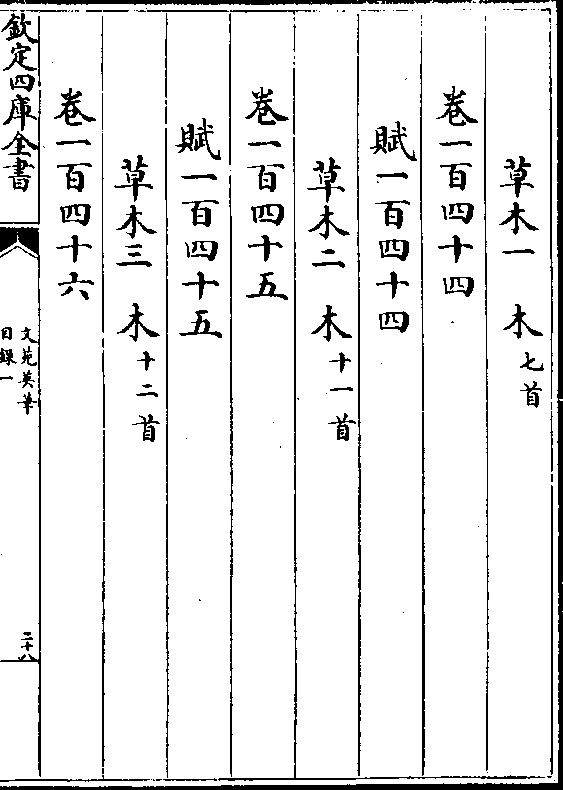 草木一　木七首
卷一百四十四
賦一百四十四
草木二　木十一首
卷一百四十五
賦一百四十五
草木三　木十二首
卷一百四十六
欽定四庫全書
文苑英華
目録一
二十八